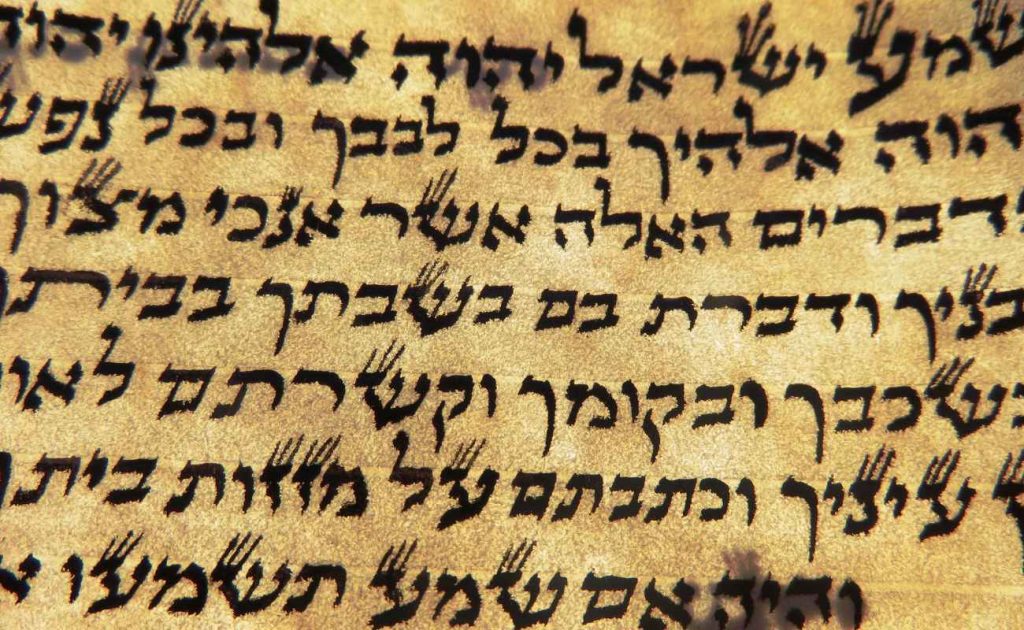 שמע ישראל יהוה אלהינו יהוה
הוה אלהיך בכל לבבך ובכל נפש
הדברים האלה אשר אנכי מצוך
לבניך ודברת בם בשבתך בביתך
בשכבך ובקומך וקשרתם לאו
עיניך וכתבתם על מזזות ביתך
והיה אם שמע תשמעו א